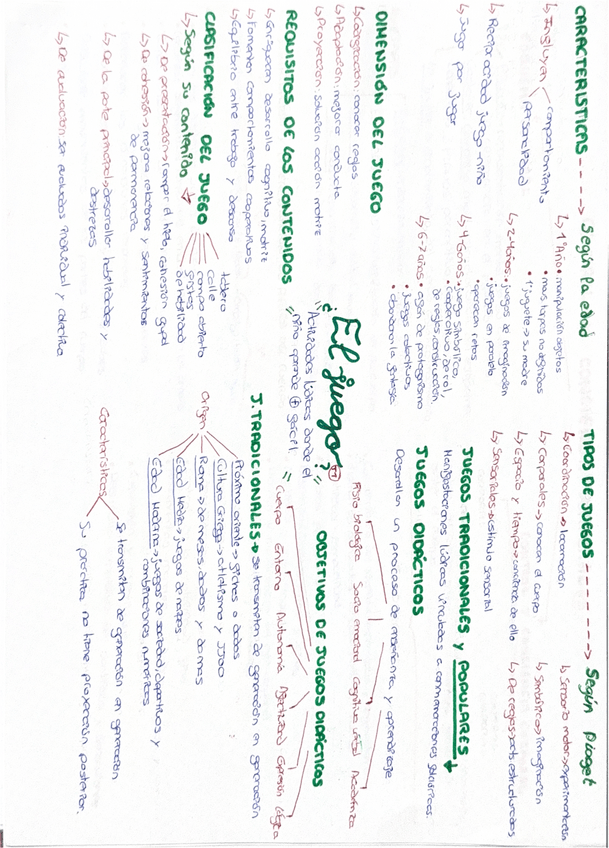 CARACTERISTICAS ----> Según la edad
↳ Influyen < comportamiento
personalidad
↳ Recta actividad juego-niño
↳ Jugar por jugar
↳ 1 Año • manipulación objetos
• mas torpes no definidos
• 1º juguete → su madre
↳ 2-4 años • juegos de imaginación
• juegos en paralelo
• aparecen retos
↳ 4-6 años • juego simbólico,
cooperativo, de rol,
de reglas, construcción.
↳ 6-7 años • afán de protagonismo
• Juegos colectivos
• abandonan la síntesis
TIPOS DE JUEGOS -----> Según Piaget
↳ Coordinación → locomoción
↳ Corporales → conocen el cuerpo
↳ Espacio y tiempo → conciencia de ello
↳ Sensoriales → estímulo sensorial
↳ Sensorio motor → experimentación
↳ Simbólico → imaginación
↳ De reglas → acts. estructuradas
DIMENSIÓN DEL JUEGO
↳ Cooperación: conocer reglas
↳ Adaptación: mejorar conducta
↳ Proyección: solución acción motriz
REQUISITOS DE LOS CONTENIDOS
↳ Enriquecen desarrollo cognitivo, motriz
↳ Fomentan comportamientos cooperativos
↳ Equilibrio entre trabajo y descanso
CLASIFICACIÓN DEL JUEGO
↳ Según su contenido
tablero
calle
campo abierto
gestos
de habilidad
↳ De presentación → romper el hielo, cohesión grupal
↳ De cohesión → mejora relaciones y sentimientos
de permanencia
↳ De la parte principal → desarrollar habilidades y
destrezas
↳ De evaluación: ser evaluados individual y colectiva
¿El juego?
"Actividades lúdicas donde el
niño aprende + fácil."
JUEGOS TRADICIONALES y POPULARES
Manifestaciones lúdicas vinculadas a conmemoraciones históricas.
JUEGOS DIDÁCTICOS
Desarrollan un proceso de enseñanza y aprendizaje
Físico biológica Socio emocional Cognitivo verbal Académica
OBJETIVOS DE JUEGOS DIDÁCTICOS
Cuerpo Entorno Autonomía Afectividad Expresión Lógica
J. TRADICIONALES → se transmiten de generación en generación
Origen
Próximo oriente → fichas o dados
Cultura Griega → atletismo y JJOO
Roma → de meses, dados y damas
Edad Media: juegos de naipes
Edad Moderna → juegos de sociedad, deportivos y
combinaciones numéricas
Características
Se transmiten de generación en generación
Su práctica no tiene proyección posterior.